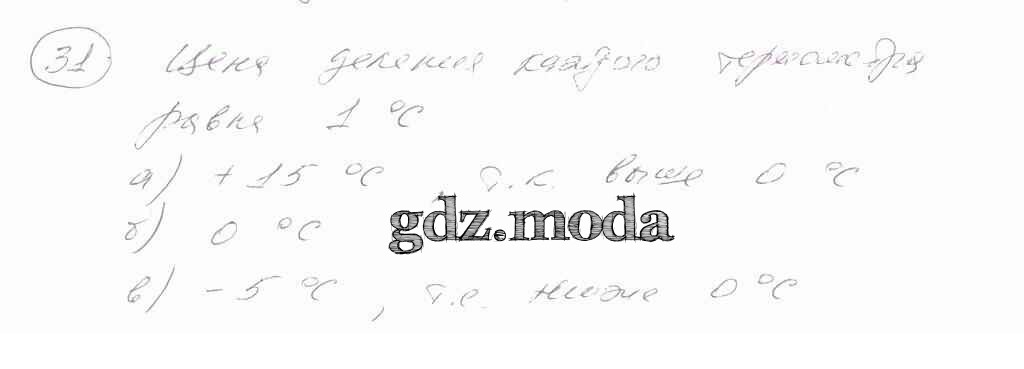 31 Цена деления каждого термометра
равна 1 °C
а) + 15 °C, т.к. выше 0 °C
б) 0 °C gdz.moda
в) - 5 °C, т.е. ниже 0 °C